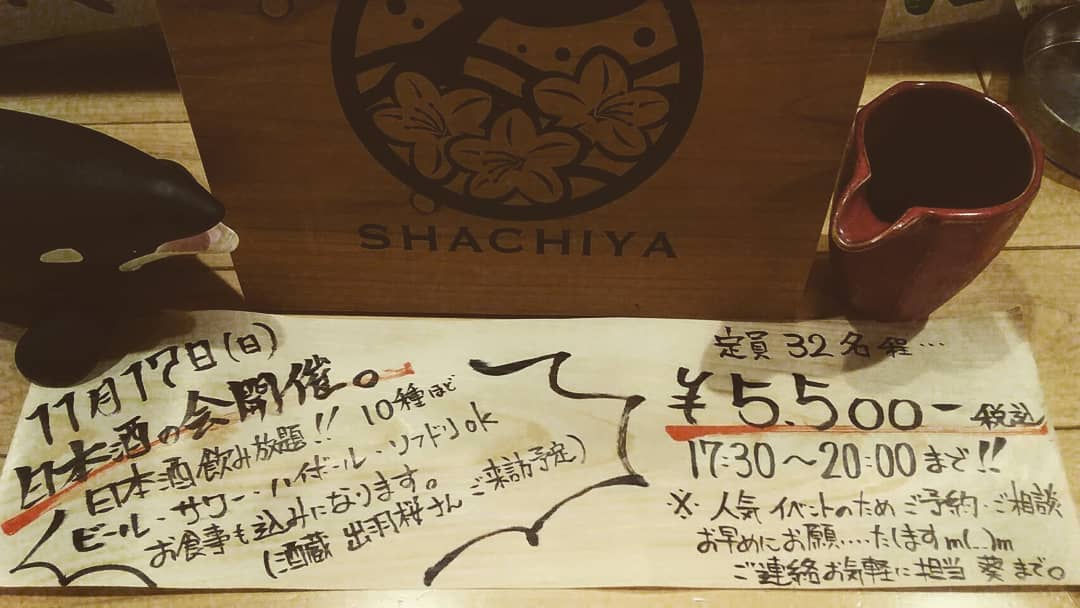 SHACHIYA
11月17日(日)
日本酒の会開催。
日本酒飲み放題!! 10種ほど
ビール・サワー・ハイボール・ソフドリok
お食事も込みになります。
(酒蔵 出羽桜さん ご来訪予定)
定員 32名程…
¥5.500- 税込
17:30〜20:00まで!!
※ 人気イベントのため ご予約・ご相談
お早めにお願……たします m(_)m
ご連絡お気軽に担当 葵まで。